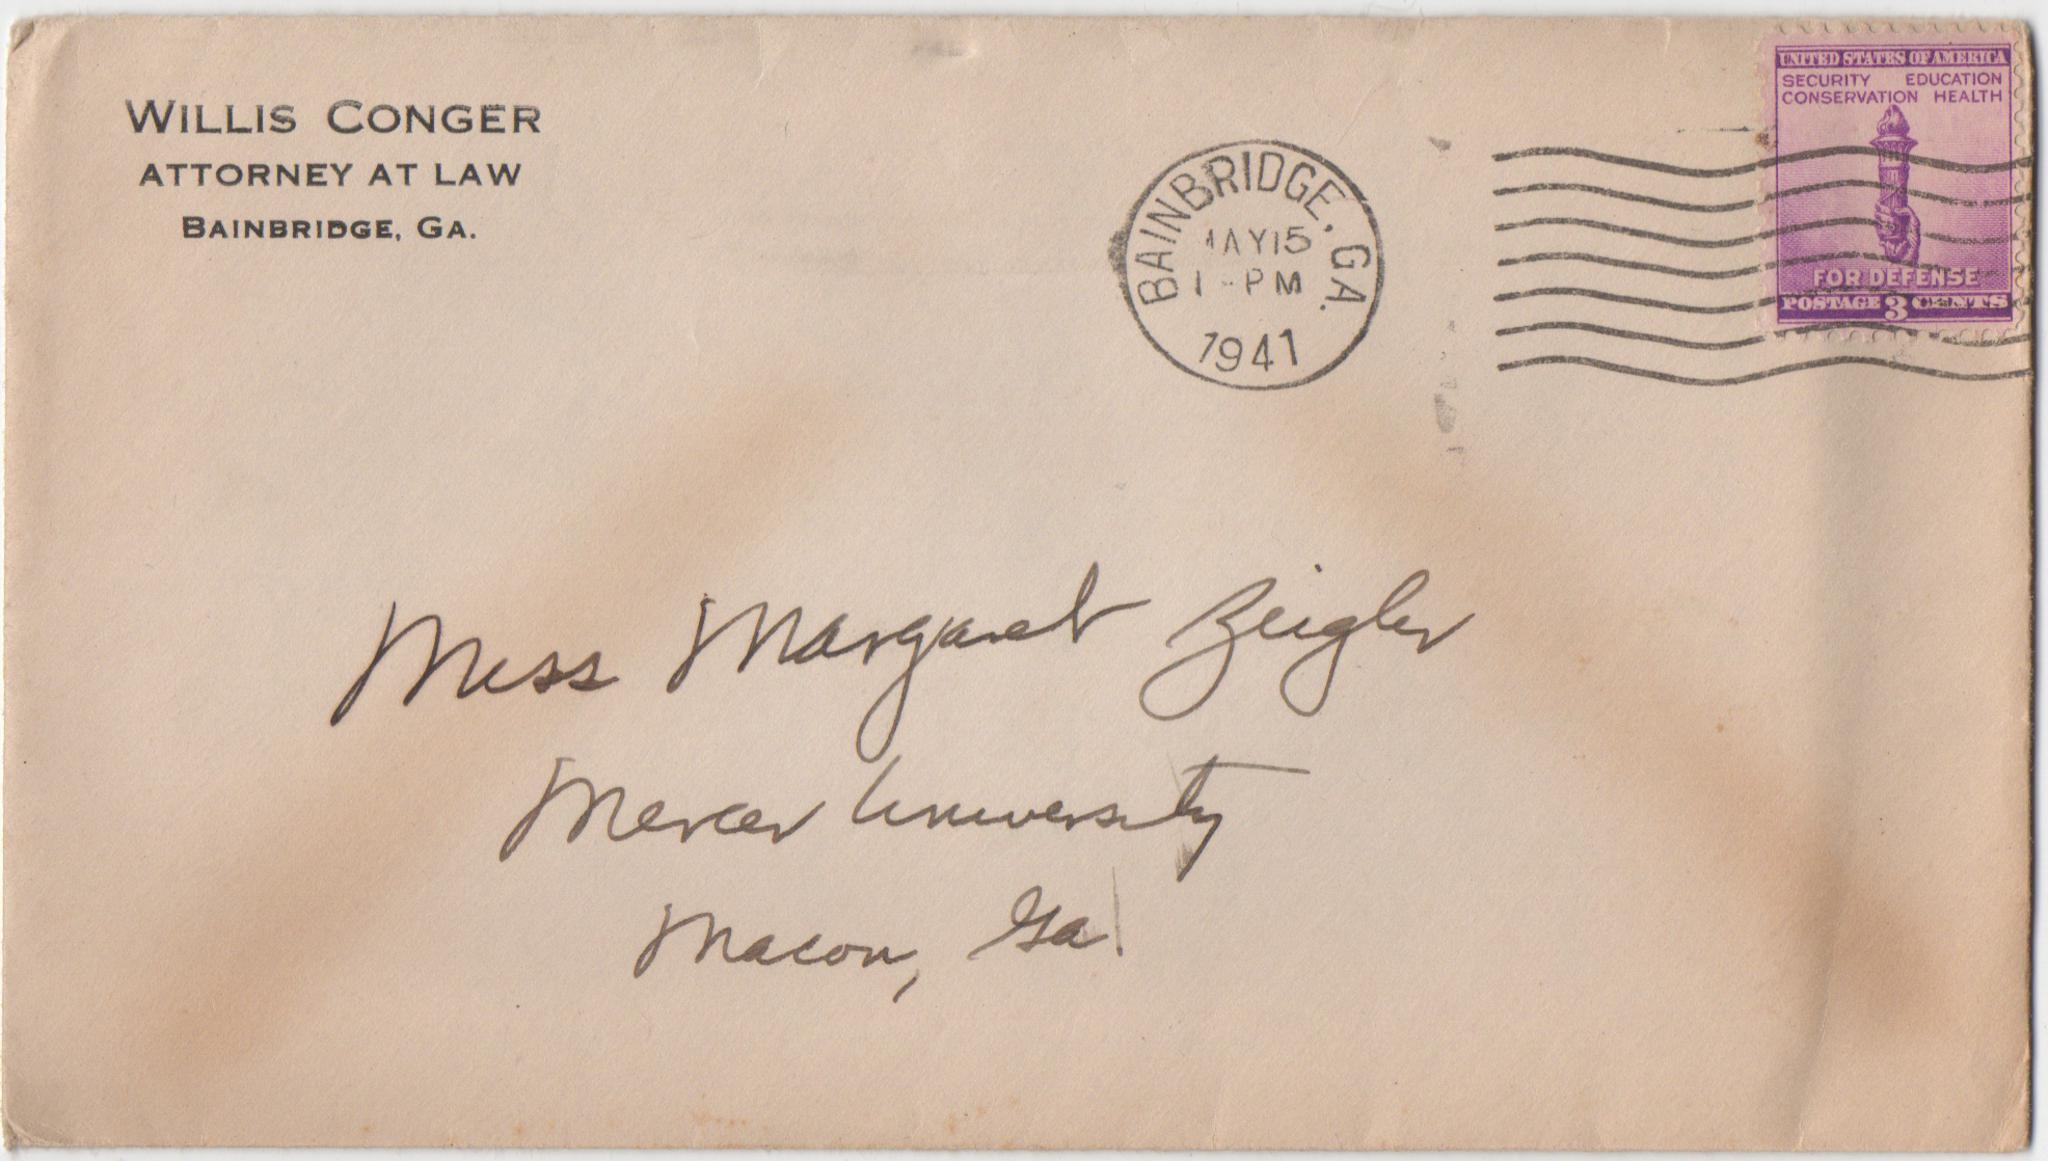 WILLIS CONGER
ATTORNEY AT LAW
BAINBRIDGE, GA.
BAINBRIDGE, GA.
MAY 15
1 - PM
1941
UNITED STATES OF AMERICA
SECURITY EDUCATION
CONSERVATION HEALTH
FOR DEFENSE
POSTAGE 3 CENTS
Miss Margaret Zeigler
Mercer University
Macon, Ga